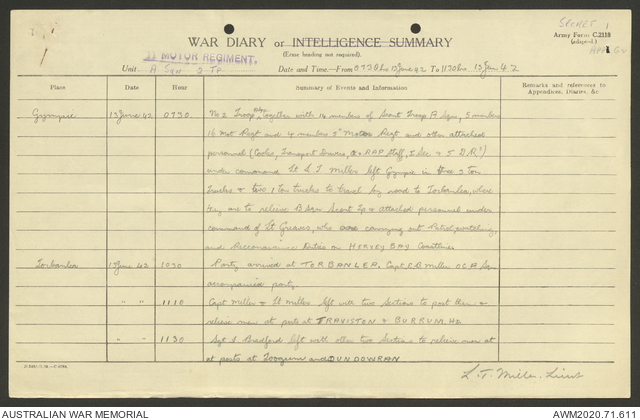 SECRET
Army Form C.2118
(adapted.)
WAR DIARY or INTELLIGENCE SUMMARY
(Erase heading not required).
MOTOR REGIMENT,
Unit A Sqn 2 Tp
Date and Time—From 0730 hrs 13 June 42 To 1130 hrs 13 June 42
Place Date Hour Summary of Events and Information Remarks and references to Appendices, Diaries, &c
Gympie 13 June 42 0730 No 2 Troop together with 14 members of Scout Troop A Sqn, 5 members
16 Mot Regt and 4 members Motor Regt and other attached
personnel (Cooks, Transport Drivers, RAP Staff, I Sec & 5 D.R's)
under command Lt L T Miller left Gympie in three 3 Ton
Trucks & two 1 Ton trucks to travel by road to Torbanlea, where
they are to relieve B Sqn Scout Tp & attached personnel under
command of Lt Greaves, who are carrying out Patrol, watching,
and Reconnaissance Duties on HERVEY BAY Coastline
Torbanlea 13 June 42 1030 Party arrived at TORBANLEA. Capt Miller O.C A Sqn
accompanied party.
" " 1110 Capt Miller & Lt Miller left with two sections to post them &
relieve men at posts at TRAVISTON & BURRUM HDS
" " 1130 Sgt S Bradford left with other two Sections to relieve men at
at posts at Toogum and DUNDOWRAN
L. T. Miller. Lieut
AUSTRALIAN WAR MEMORIAL AWM2020.71.611